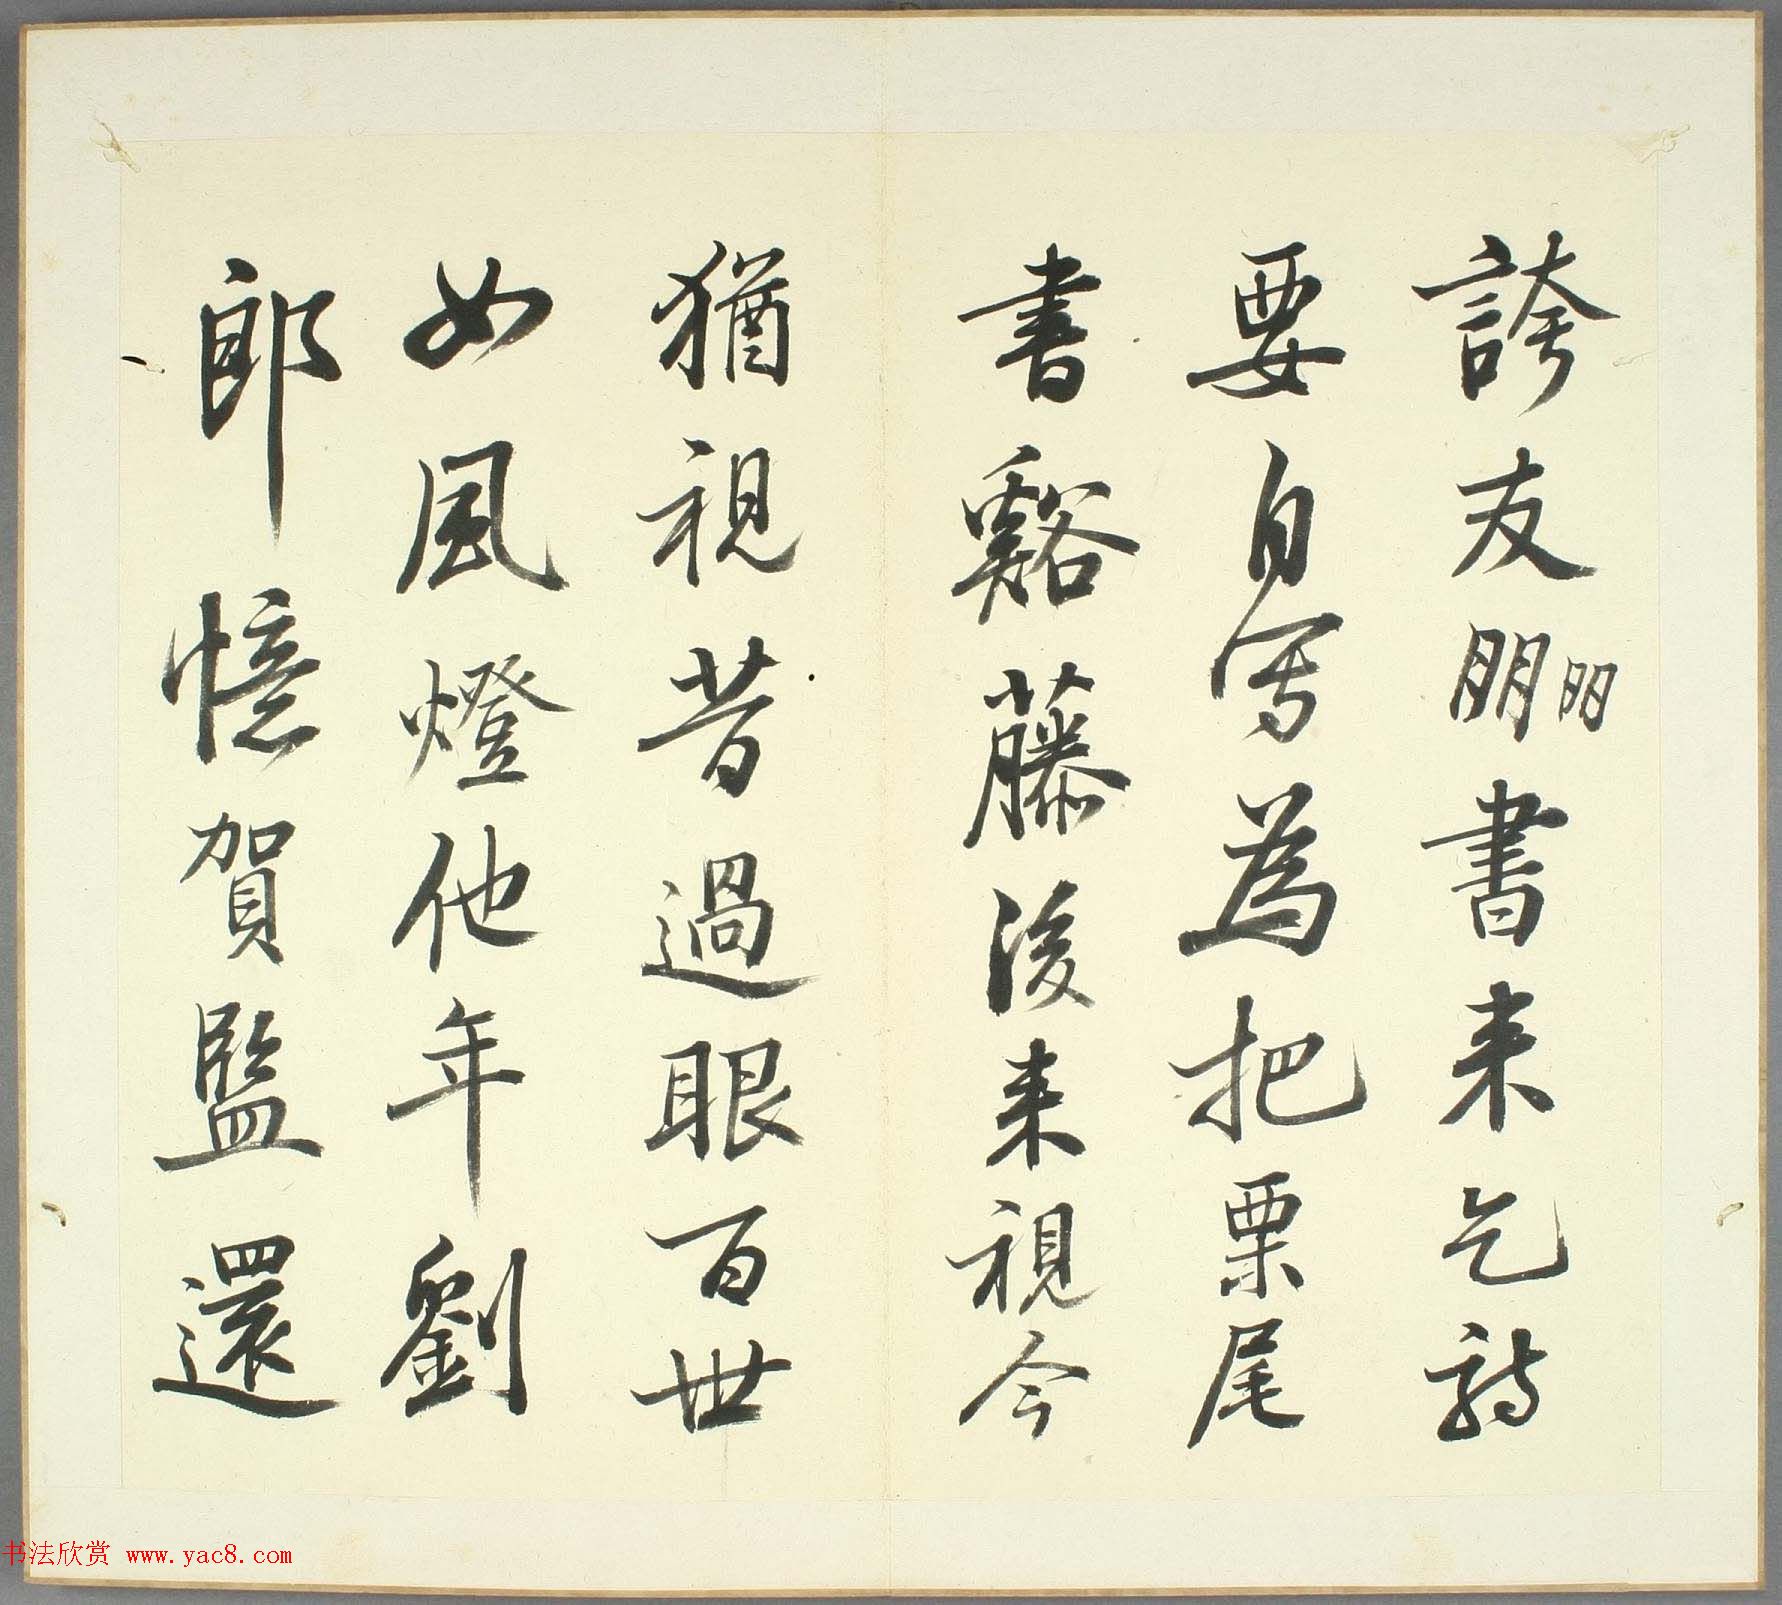 誇友朋明書来乞詩
要自寫為把栗尾
書谿藤後来視今
猶視昔過眼百世
如風燈他年劉
郎憶賀監還
书法欣赏 www.yac8.com